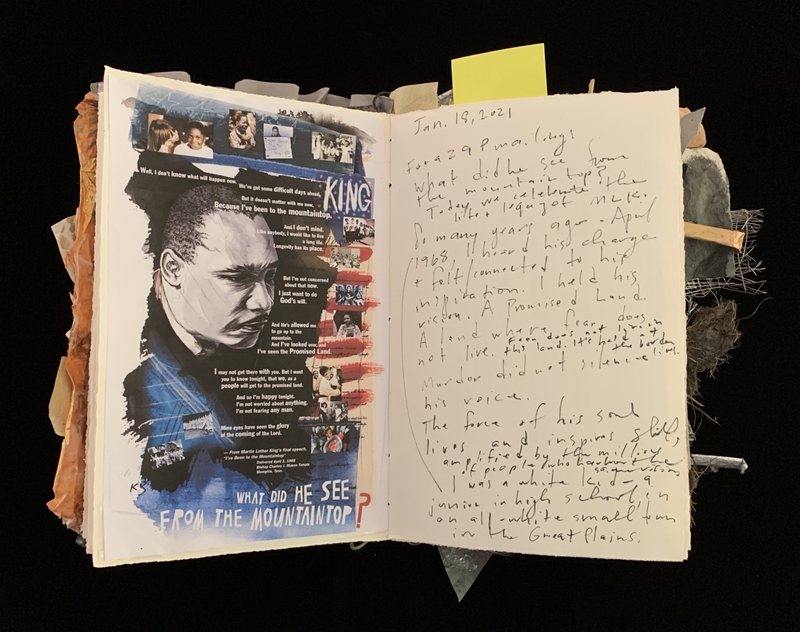 Well, I don't know what will happen now.
We've got some difficult days ahead,
But it doesn't matter with me now,
Because I've been to the mountaintop.
KING
And I don't mind.
Like anybody, I would like to live
a long life.
Longevity has its place.
But I'm not concerned
about that NOW.
I just want to do
God's will.
And He's allowed me
to go up to the
mountain.
And I've looked over, and
I've seen the Promised Land.
I may not get there with you. But I want
you to know tonight, that we, as a
people will get to the promised land.
And so I'm happy tonight.
I'm not worried about anything.
I'm not fearing any man.
Mine eyes have seen the glory
of the coming of the Lord.
— From Martin Luther King's final speech,
"I've Been to the Mountaintop"
Delivered April 3, 1968
Bishop Charles J. Mason Temple
Memphis, Tenn.
KS
WHAT DID HE SEE
FROM THE MOUNTAINTOP?
Jan. 18, 2021
What did he see from
the mountaintop?
Today, we celebrate the
life + legacy of MLK.
So many years ago - April
1968 I heard his charge
+ felt connected to his
inspiration. I held his
vision. A Promised Land.
A land where fear does
not live. Fear does not live in
this land. It's held at
the border.
Murder did not silence
his voice.
The force of his soul
lives and inspires still,
amplified by the millions
of people who harbor the
same visions
I was a white kid - a
junior in high school, in
an all-white small town
in the Great Plains.